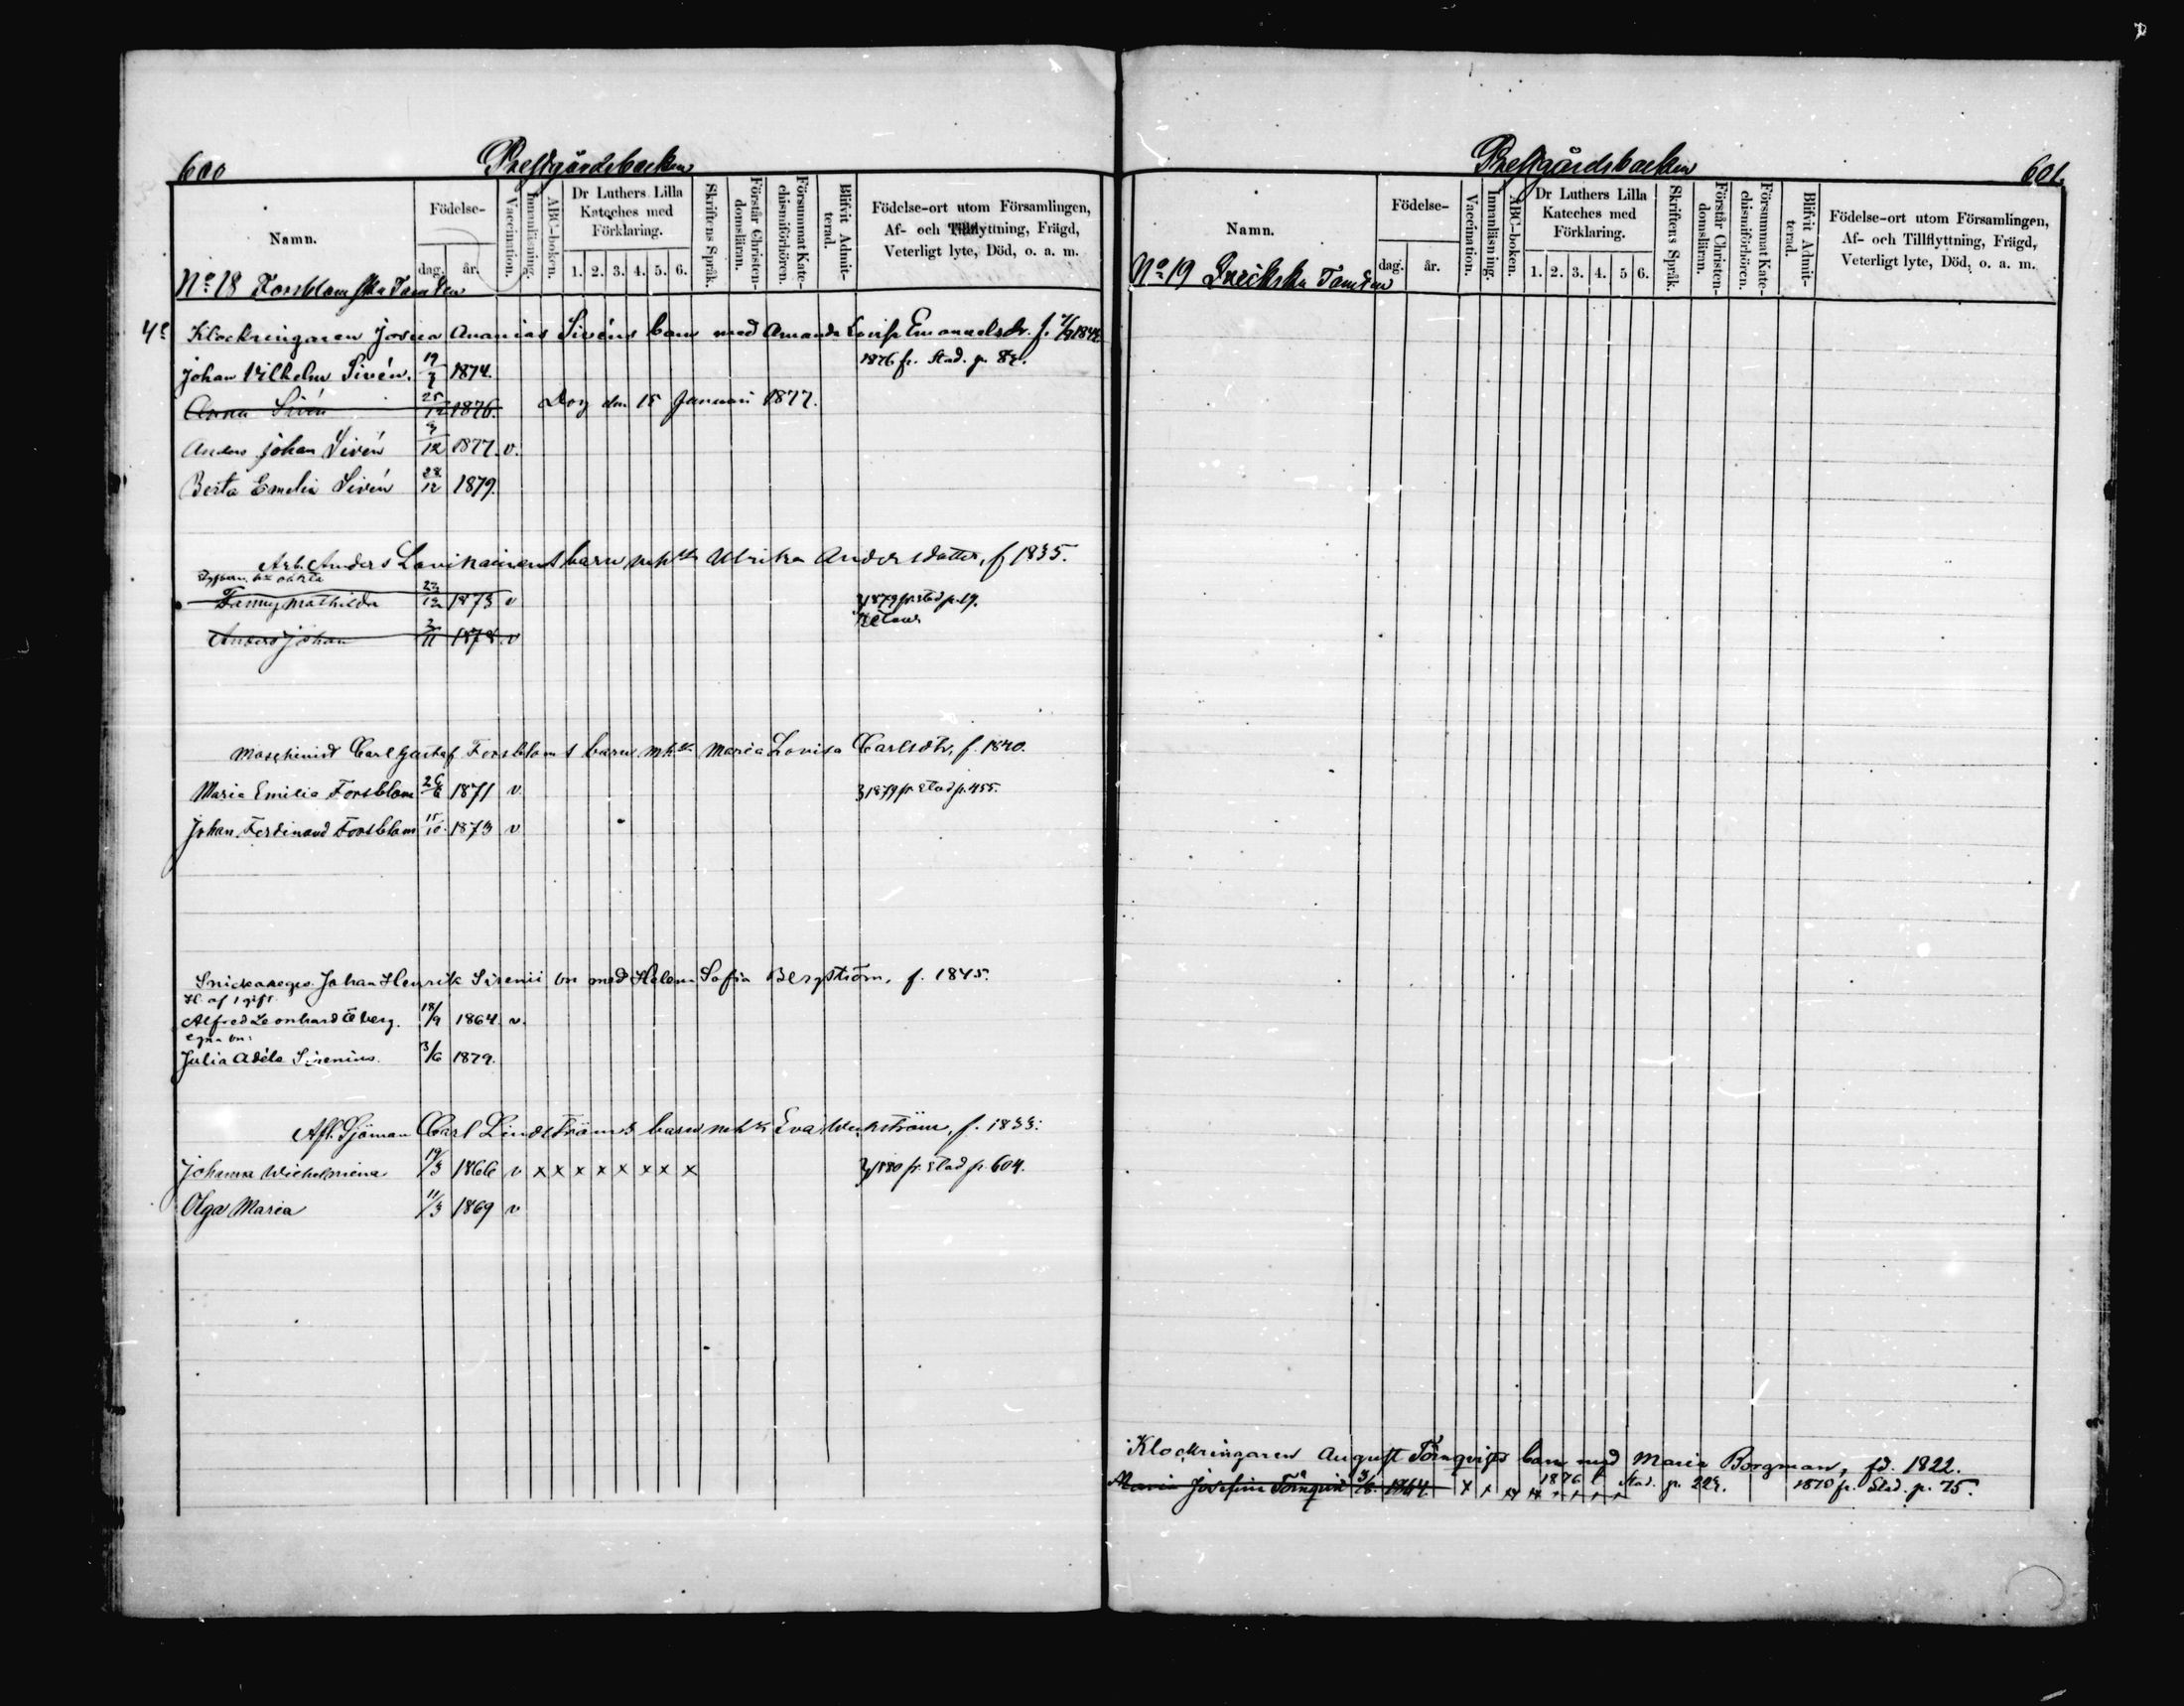 600 Prestgårdsbacken
Namn. Födelse- dag. år. Vaccination. Innanläsning. ABC-boken. Dr Luthers Lilla Kateches med Förklaring. 1. 2. 3. 4. 5. 6. Skriftens Språk. Förstår Christendomsläran. Försummat Katechismiförhören. Blifvit Admitterad. Födelse-ort utom Församlingen, Af- och Tillflyttning, Frägd, Veterligt lyte, Död, o. a. m.
No 18 Forsblomska Tomten
Klockringaren Josua Ananias Sivéns barn med Amanda Lovisa Emanuelsdr. f. 1844
Johan Vilhelm Sivén. 19/7 1874. 1876 fr. Stad. p. 82.
Anna Sivén 25/12 1876. Dog den 15 Januari 1877.
Anders Johan Sivén 9/12 1877. v.
Berta Emelia Sivén 28/12 1879.
Arb. Anders Lavikainens barn m h u Ulrika Andersdotter, f 1835.
Fanny Mathilda 23/12 1873 v 1879 fr. stad p. 19.
Retour
Anders Johan 3/11 1878. v
Maschinist Carl Gustaf Forsbloms barn m h u Maria Lovisa Carlsdtr, f. 1840.
Maria Emilia Forsblom 26/6 1871 v. 1879 fr. stad p. 455.
Johan Ferdinand Forsblom 15/10 1873 v
Snickareges. Johan Henrik Sirenii bn med Helena Sofia Bergström, f. 1845.
H. af 1 gift.
Alfred Leonhard Öberg. 18/9 1864. v.
egna bn:
Julia Adéle Sirenius. 3/6 1879.
Afl. Sjöman Carl Lindströms barn m h u Eva Weckström, f. 1833:
Johanna Wilhelmina 19/3 1866 v x x x x x x x x 1880 fr. stad p. 604.
Olga Maria 11/3 1869 v
Prestgårdsbacken 601.
Namn. Födelse- dag. år. Vaccination. Innanläsning. ABC-boken. Dr Luthers Lilla Kateches med Förklaring. 1. 2. 3. 4. 5 6. Skriftens Språk. Förstår Christendomsläran. Försummat Katechismiförhören. Blifvit Admitterad. Födelse-ort utom Församlingen, Af- och Tillflyttning, Frägd, Veterligt lyte, Död, o. a. m.
No 19 Tomten
Klockringaren August Törnqvists barn med Maria Borgman, fd. 1822.
Maria Josefina Törnqvist 3/6. 1864. x x x x x x x x 1876 t Stad. p. 223. 1870 fr. Stad. p. 75.